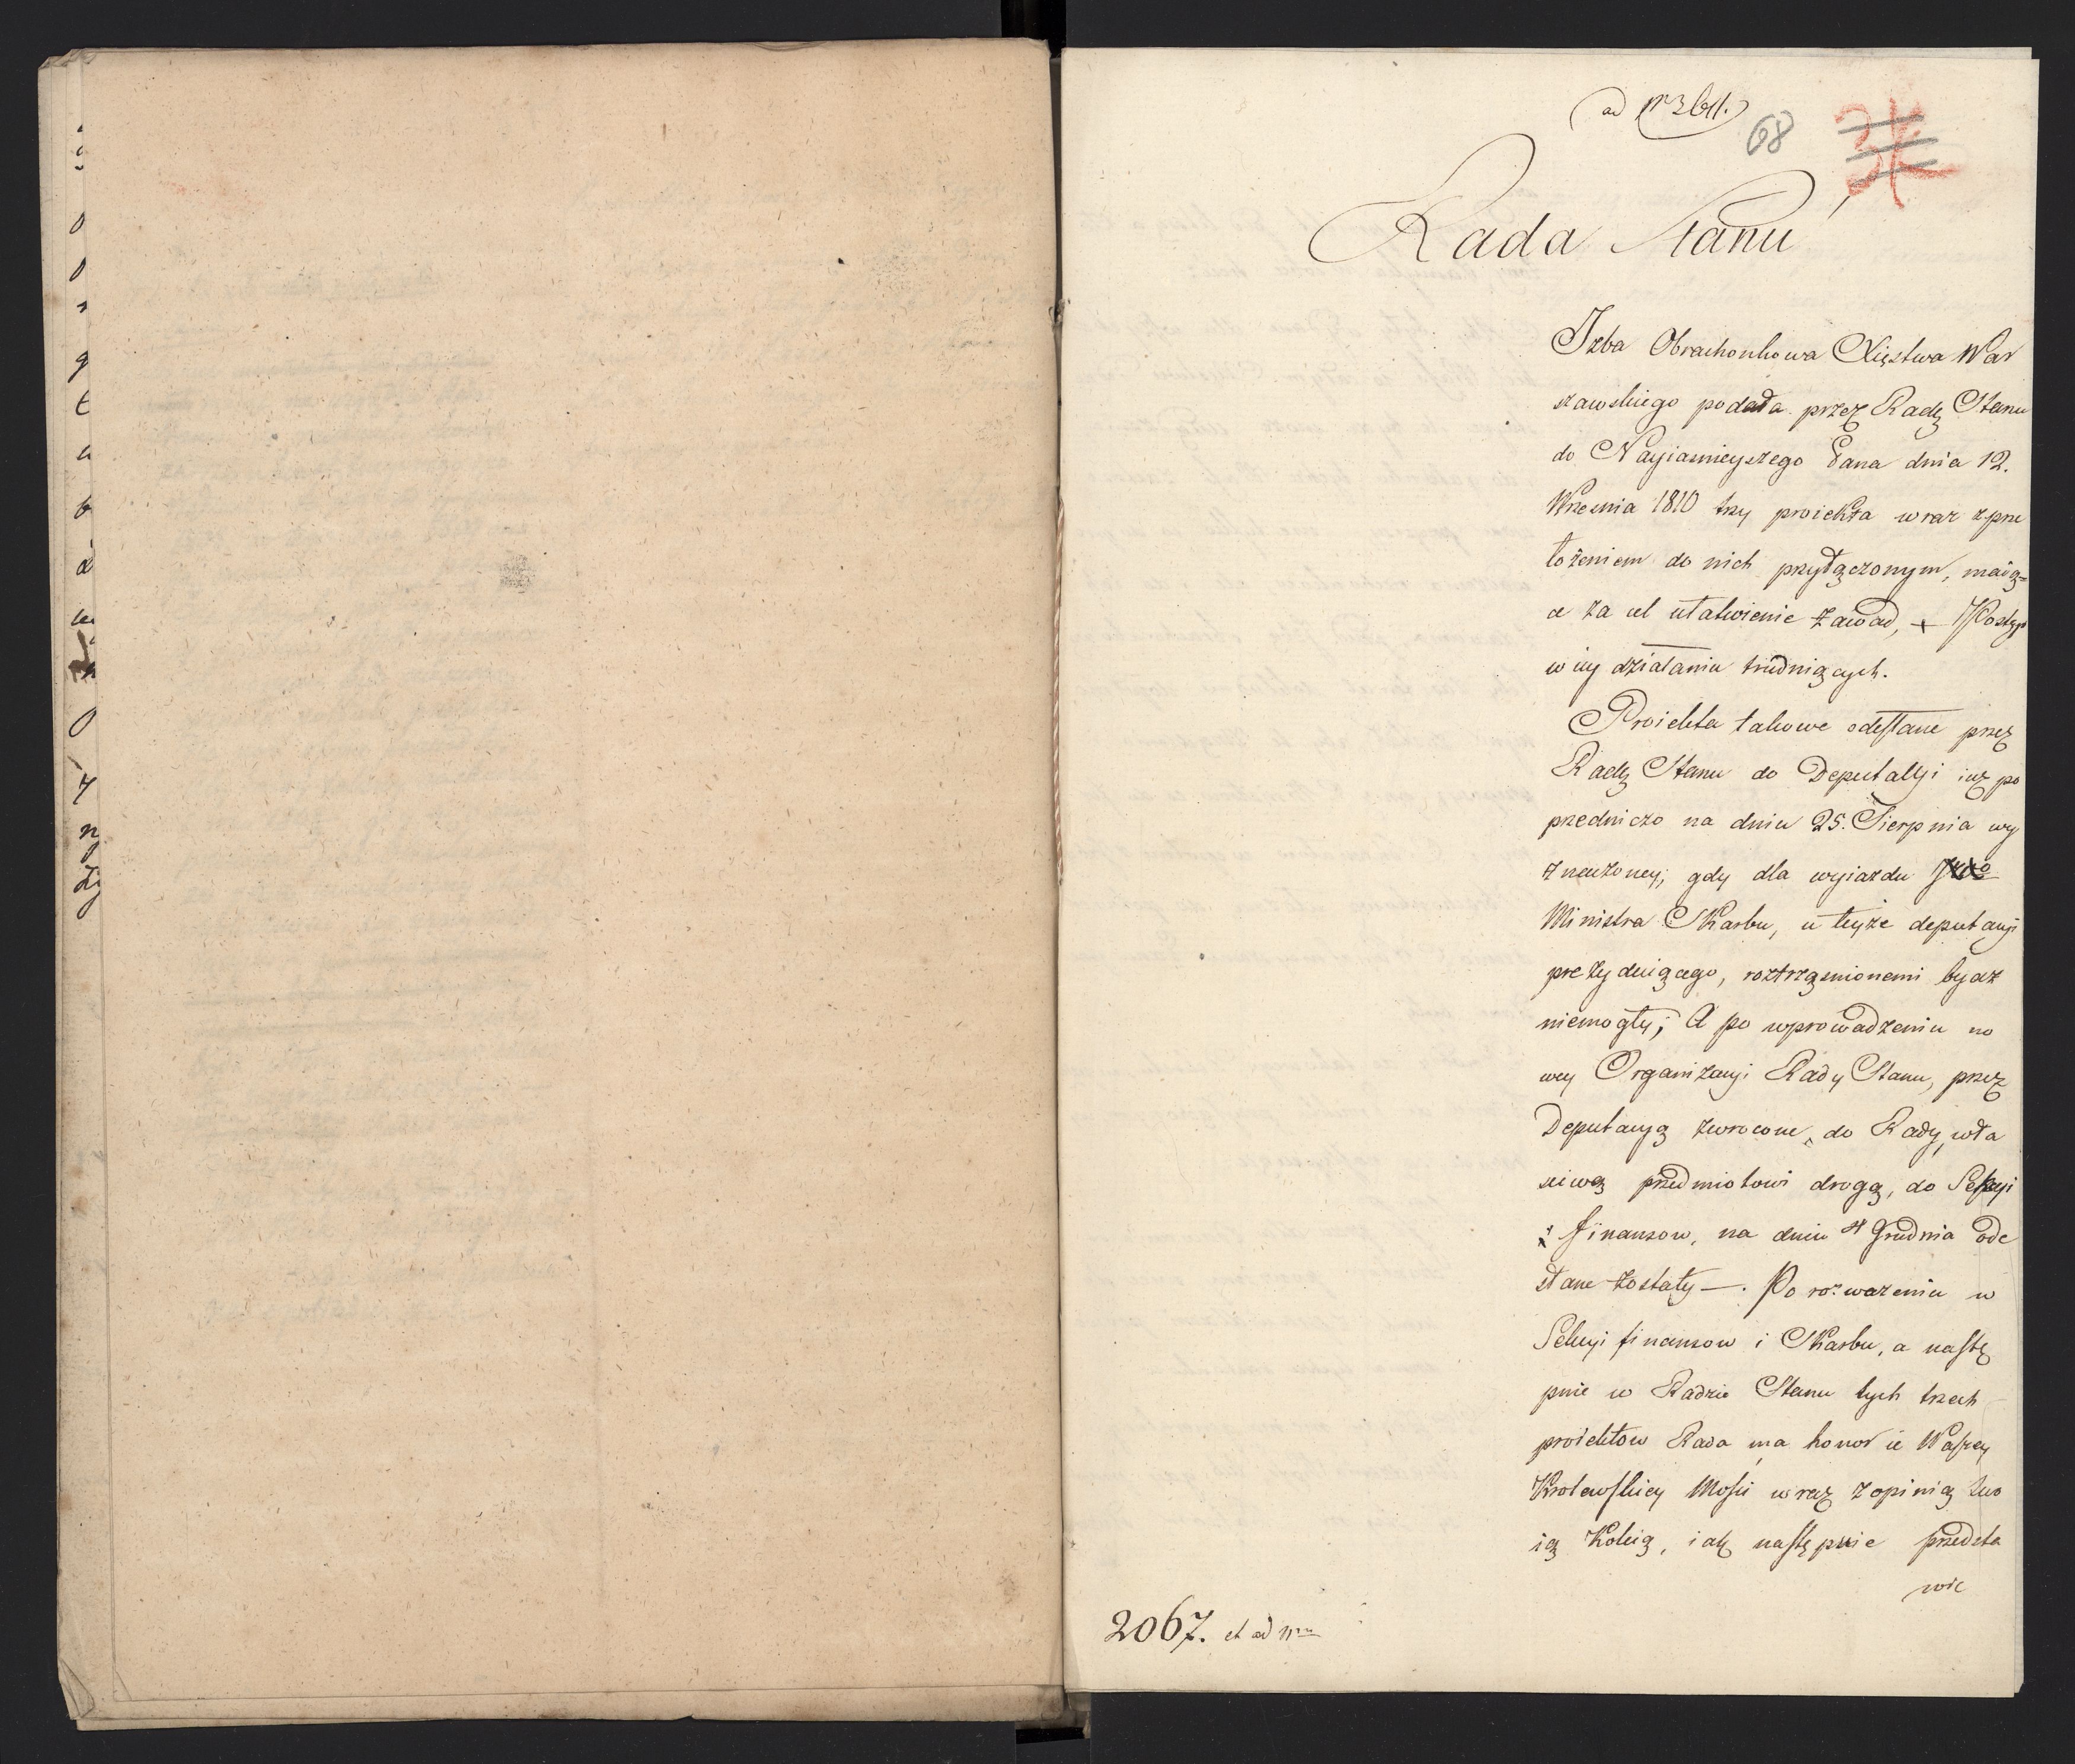 ad nr 3641.
68
Rada Stanu
Izba Obrachonkowa Xięstwa War
szawskiego podała przez Radę Stanu
do Nayiasnieyszego Pana dnia 12.
Wrzesnia 1810 trzy proiekta wraz z prze
łożeniem do nich przyłączonym, maią=
ce za cel ułatwienie zawad, Postęp
w iey działaniu trudniących.
Proiekta takowe odesłane przez
Radę Stanu do Deputacyi iuż po
przedniczo na dniu 25. Sierpnia wy
znaczoney, gdy dla wyiazdu
Ministra Skarbu, w teyże deputacyi
prezyduiącego, roztrząsnionemi bydz
niemogły; A po wprowadzeniu no
wey Organizacyi Rady Stanu, przez
Deputacyą zwrocone, do Rady, wła
sciwą przedmiotowi drogą, do Sekcyi
finansow, na dniu 4 Grudnia ode
słane zostały —. Po rozważeniu w
Sekcyi finansow i Skarbu, a nastę
pnie w Radzie Stanu tych trzech
proiektow Rada ma honor ie Waszey
Krolewskiey Mości wraz z opinią swo
ią Koleią, iak następnie przedsta
wic
2067. et ad nrm